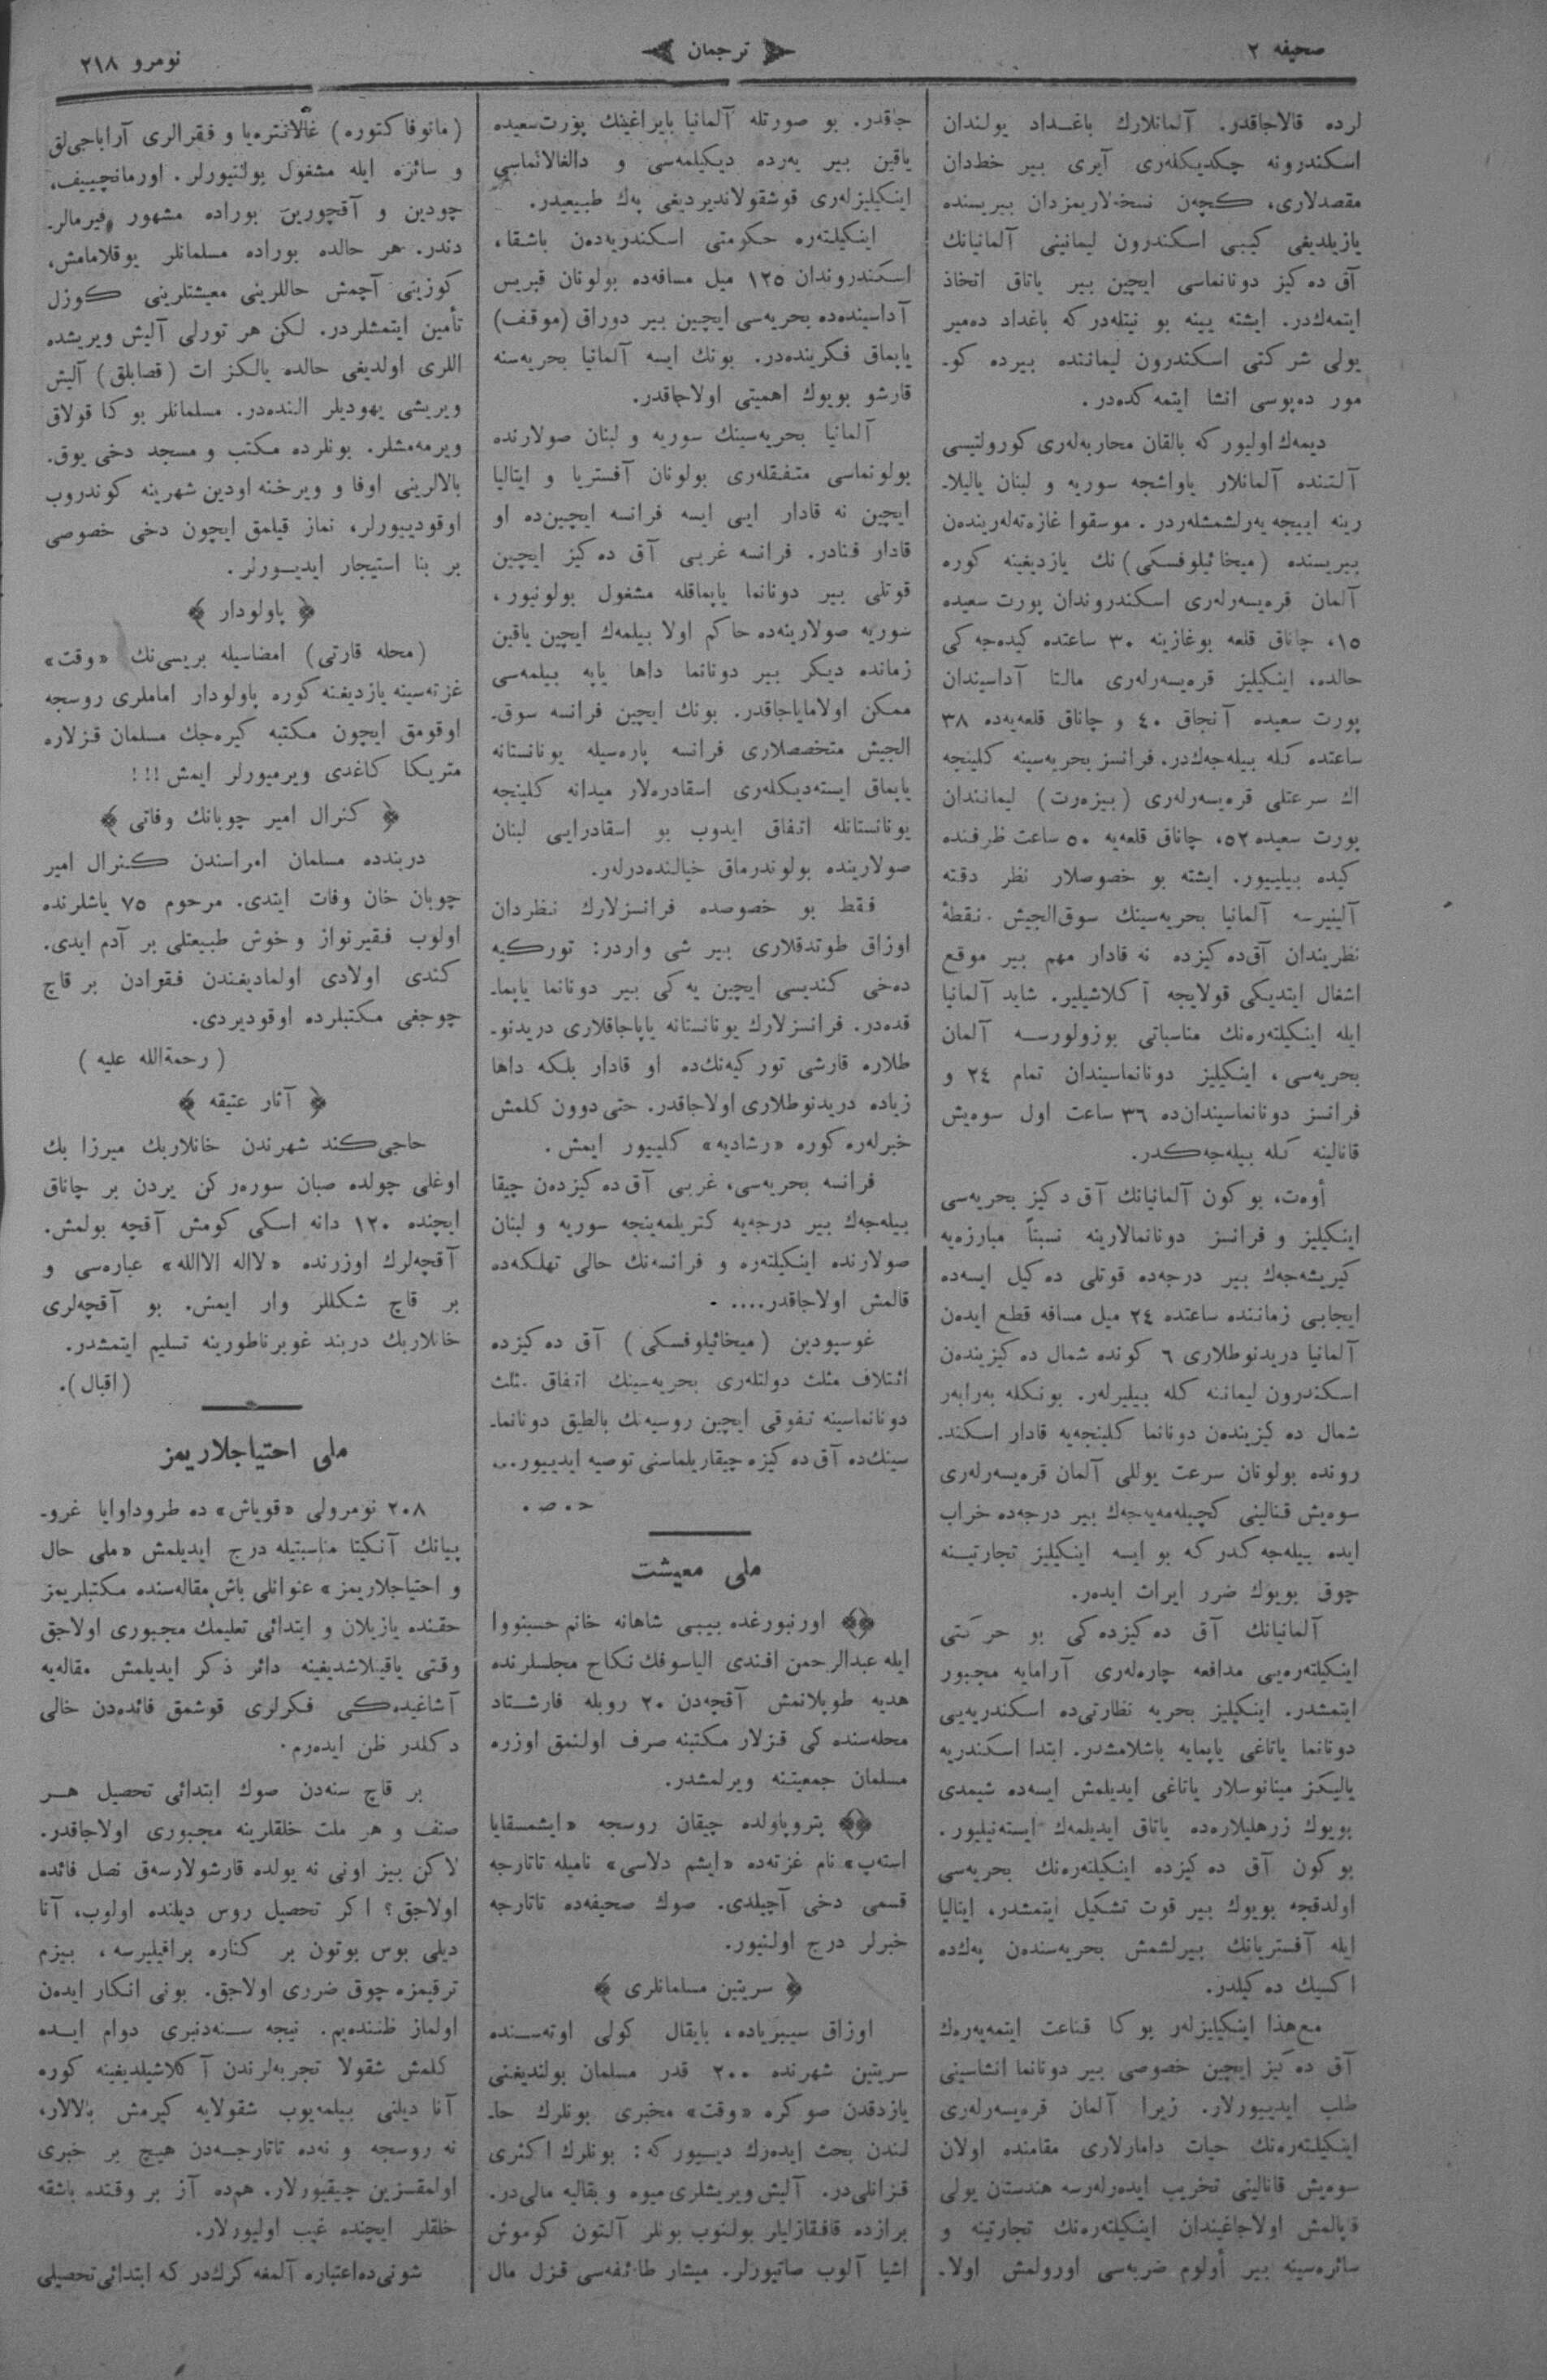 صحیفه ۲
ترجمان
نومرو ۲۱۸
لرده قالاجاقدر. آلمانلارك باغداد یولندان
اسكندرونه چكدیكلەری آیری بیر خطدان
مقصدلاری، كچەن نسخەلاریمزدان بیریسنده
یازیلدیغی كیبی اسكندرون لیمانینی آلمانیانك
آق دەكیز دونانماسی ایچین بیر یاتاق اتخاذ
ایتمەكدر. ایشته یینه بو نیتلەدركه باغداد دەمیر
یولی شركتی اسكندرون لیماننده بیرده كو-
مور دەپوسی انشا ایتمەكدەدر.
دیمەك اولیور كه بالقان محاربەلەری كورولتیسی
آلتنده آلمانلار یاواشجه سوریه و لبنان یالیلا-
رینه اییجه یەرلشمشلەردر. موسقوا غازەتەلەریندەن
بیریسنده (میخائیلوفسكی) نك یازدیغینه كوره
آلمان قرەیسەرلەری اسكندروندان پورت سعیده
۱۵، چاناق قلعه بوغازینه ۳۰ ساعتده كیدەجەكی
حالده، اینكیلیز قرەیسەرلەری مالتا آداسیندان
پورت سعیده آنجاق ۴۰ و چاناق قلعەیەده ۳۸
ساعتده كله بیلەجەكدر. فرانسز بحریەسینه كلینجه
اك سرعتلی قرەیسەرلەری (بیزەرت) لیمانندان
پورت سعیده ۵۲، چاناق قلعەیه ۵۰ ساعت ظرفنده
كیده بیلییور. ایشته بو خصوصلار نظر دقته
آلینیرسه آلمانیا بحریەسینك سوق‌الجیش نقطۀ
نظریندان آق‌دەكیزده نه قادار مهم بیر موقع
اشغال ایتدیكی قولایجه آكلاشیلیر. شاید آلمانیا
ایله اینكیلتەرەنك مناسباتی بوزولورسه آلمان
بحریەسی، اینكیلیز دونانماسیندان تمام ۲۴ و
فرانسز دونانماسیندان‌ده ۳۶ ساعت اول سوەیش
قانالینه كله بیلەجەكدر.
أوەت، بو كون آلمانیانك آق دكیز بحریەسی
اینكیلیز و فرانسز دونانمالارینه نسبتاً مبارزەیه
كیریشەجەك بیر درجەده قوتلی دەكیل ایسەده
ایجابی زماننده ساعتده ۲۴ میل مسافه قطع ایدەن
آلمانیا دریدنوطلاری ۶ كونده شمال دەكیزیندەن
اسكندرون لیماننه كله بیلیرلەر. بونكله بەرابەر
شمال دەكیزیندەن دونانما كلینجەیه قادار اسكند-
رونده بولونان سرعت یوللی آلمان قرەیسەرلەری
سوەیش قنالینی كچیلەمەیەجەك بیر درجەده خراب
ایده بیلەجەكدركه بو ایسه اینكیلیز تجارتیینه
چوق بویوك ضرر ایراث ایدەر.
آلمانیانك آق دەكیزدەكی بو حركتی
اینكیلتەرەیی مدافعه چارەلەری آرامایه مجبور
ایتمشدر. اینكیلیز بحریه نظارتی‌ده اسكندریەیی
دونانما یاتاغی یاپمایه باشلامشدر. ابتدا اسكندریه
یالیكز مینانوسلار یاتاغی ایدیلمش ایسەده شیمدی
بویوك زرهلیلارەده یاتاق ایدیلمەك ایستەنیلیور.
بو كون آق دەكیزده اینكیلتەرەنك بحریەسی
اولدقجه بویوك بیر قوت تشكیل ایتمشدر، ایتالیا
ایله آفستریانك بیرلشمش بحریەسندەن پەك‌ده
اكسیك دەكیلدر.
مع‌هذا اینكیلیزلەر بوكا قناعت ایتمەیەرەك
آق دەكیز ایچین خصوصی بیر دونانما انشاسینی
طلب ایدییورلار. زیرا آلمان قرەیسەرلەری
اینكیلتەرەنك حیات دامارلاری مقامنده اولان
سوەیش قانالینی تخریب ایدەرلەرسه هندستان یولی
قپالمش اولاجاغیندان اینكیلتەرەنك تجارتینه و
سائرەسینه بیر أولوم ضربەسی اورولمش اولا-
جاقدر. بو صورتله آلمانیا بایراغینك پورت‌سعیده
یاقین بیر یەرده دیكیلمەسی و دالغالانماسی
اینكیلیزلەری قوشقولاندیردیغی پەك طبیعیدر.
اینكیلتەره حكومتی اسكندریەدەن باشقا،
اسكندروندان ۱۲۵ میل مسافەده بولونان قبریس
آداسیندەده بحریەسی ایچین بیر دوراق (موقف)
یاپماق فكریندەدر. بونك ایسه آلمانیا بحریەسنه
قارشو بویوك اهمیتی اولاجاقدر.
آلمانیا بحریەسینك سوریه و لبنان صولارنده
بولونماسی متفقلەری بولونان آفستریا و ایتالیا
ایچین نه قادار ایی ایسه فرانسه ایچین‌ده او
قادار فنادر. فرانسه غربی آق دەكیز ایچین
قوتلی بیر دونانما یاپماقله مشغول بولونیور،
سوریه صولارینەده حاكم اولا بیلمەك ایچین یاقین
زمانده دیكر بیر دونانما داها یاپه بیلمەسی
ممكن اولامایاجاقدر. بونك ایچین فرانسه سوق-
الجیش متخصصلاری فرانسه پارەسیله یونانستانه
یاپماق ایستەدیكلەری اسقادرەلار میدانه كلینجه
یونانستانله اتفاق ایدوب بو اسقادرایی لبنان
صولارینده بولوندرماق خیالندەدرلەر.
فقط بو خصوصده فرانسزلارك نظردان
اوزاق طوتدقلاری بیر شی واردر: توركیه
دەخی كندیسی ایچین یەكی بیر دونانما یاپما-
قدەدر. فرانسزلارك یونانستانه یاپاجاقلاری دریدنو-
طلاره قارشی توركیەنك‌ده او قادار بلكه داها
زیاده دریدنوطلاری اولاجاقدر. حتی دوون كلمش
خبرلەره كوره «رشادیه» كلییور ایمش.
فرانسه بحریەسی، غربی آق دەكیزدەن چیقا
بیلەجەك بیر درجەیه كتریلمەینجه سوریه و لبنان
صولارنده اینكیلتەره و فرانسەنك حالی تهلكەده
قالمش اولاجاقدر....
غوسپودین (میخائیلوفسكی) آق دەكیزده
ائتلاف مثلث دولتلەری بحریەسینك اتفاق مثلث
دونانماسینه تفوقی ایچین روسیەنك بالطیق دونانما-
سینك‌ده آق دەكیزه چیقاریلماسنی توصیه ایدییور...
ح. ص.
ملی معیشت
اورنبورغده بیبی شاهانه خانم حسینووا
ایله عبدالرحمن افندی الیاسوفك نكاح مجلسلرنده
هدیه طوپلانمش آقچەدن ۲۰ روبله فارشتاد
محلەسندەكی قزلار مكتبنه صرف اولنمق اوزره
مسلمان جمعیتنه ویرلمشدر.
پتروپاولده چیقان روسجه «ایشمسقایا
استەپ» نام غزتەده «ایشم دلاسی» نامیله تاتارجه
قسمی دخی آچیلدی. صوك صحیفەده تاتارجه
خبرلر درج اولنیور.
سریتین مسلمانلری
اوزاق سیبریاده، بایقال كولی اوتەسنده
سریتین شهرنده ۲۰۰ قدر مسلمان بولندیغنی
یازدقدن صوكره «وقت» مخبری بونلرك حا-
لندن بحث ایدەرك دیییوركه: بونلرك اكثری
قزانلی‌در. آلیش ویریشلری میوه و بقالیه مالی‌در.
برازده قافقازلیلر بولنوب بونلر آلتون كوموش
اشیا آلوب صاتیورلر. میشار طائفەسی قزل مال
(مانوفاكتوره) غالانتریا و فقرالری آراباجی‌لق
و سائره ایله مشغول بولنیورلر. اورمانچییف،
چودین و آقچورین بوراده مشهور فیرمالر-
دندر. هر حالده بوراده مسلمانلر یوقلامامش،
كوزینی آچمش حاللرینی معیشتلرینی كوزل
تأمین ایتمشلردر. لكن هر تورلی آلیش ویریشده
اللری اولدیغی حالده یالكز ات (قصابلق) آلیش
ویریشی یهودیلر الندەدر. مسلمانلر بوكا قولاق
ویرمەمشلر. بونلرده مكتب و مسجد دخی یوق.
بالالرینی اوفا و ویرخنه اودین شهرینه كوندروب
اوقودییورلر، نماز قیلمق ایچون دخی خصوصی
بر بنا استیجار ایدییورلر.
پاولودار
(محله قارتی) امضاسیله بریسی‌نك «وقت»
غزتەسینه یازدیغنه كوره پاولودار اماملری روسجه
اوقومق ایچون مكتبه كیرەجك مسلمان قزلاره
متریكا كاغدی ویرمیورلر ایمش!!!
كنرال امیر چوبانك وفاتی
دربندده مسلمان امراسندن كنرال امیر
چوبان خان وفات ایتدی. مرحوم ۷۵ یاشلرنده
اولوب فقیرنواز و خوش طبیعتلی بر آدم ایدی.
كندی اولادی اولمادیغندن فقرادن بر قاچ
چوجغی مكتبلرده اوقودیردی.
(رحمةالله علیه)
آثار عتیقه
حاجی‌كند شهرندن خانلاربك میرزا بك
اوغلی چولده صبان سوررکن یردن بر چاناق
ایچنده ۱۲۰ دانه اسكی كومش آقچه بولمش.
آقچەلرك اوزرنده «لااله الاالله» عبارەسی و
بر قاچ شكللر وار ایمش. بو آقچەلری
خانلاربك دربند غوبرناطورینه تسلیم ایتمشدر.
(اقبال).
ملی احتیاجلاریمز
۲۰۸ نومرولی «قویاش» ده طروداوایا غرو-
پپانك آنكیتا مناسبتیله درج ایدیلمش «ملی حال
و احتیاجلاریمز» عنوانلی باش مقالەسنده مكتبلریمز
حقنده یازیلان و ابتدائی تعلیمك مجبوری اولاجق
وقتی یاقینلاشدیغینه دائر ذكر ایدیلمش مقالەیه
آشاغیدەكی فكرلری قوشمق فائدەدن خالی
دكلدر ظن ایدەرم.
بر قاچ سنەدن صوك ابتدائی تحصیل هر
صنف و هر ملت خلقلرینه مجبوری اولاجاقدر.
لاكن بیز اونی نه یولده قارشولارسەق نصل فائده
اولاجق؟ اكر تحصیل روس دیلنده اولوب، آنا
دیلی بوس بوتون بر كناره براقیلیرسه، بیزم
ترقیمزه چوق ضرری اولاجق. بونی انكار ایدەن
اولماز ظنندەیم. نیجه سنەدنبری دوام ایده
كلمش شقولا تجربەلرندن آكلاشیلدیغینه كوره
آنا دیلنی بیلمەیوب شقولایه كیرمش بالالار،
نه روسجه و نەده تاتارجەدن هیچ بر خبری
اولمقسزین چیقیورلار. هم‌ده آز بر وقتده باشقه
خلقلر ایچنده غیب اولیورلار.
شونی‌ده اعتباره آلمغه كرك‌در كه ابتدائی تحصیلی